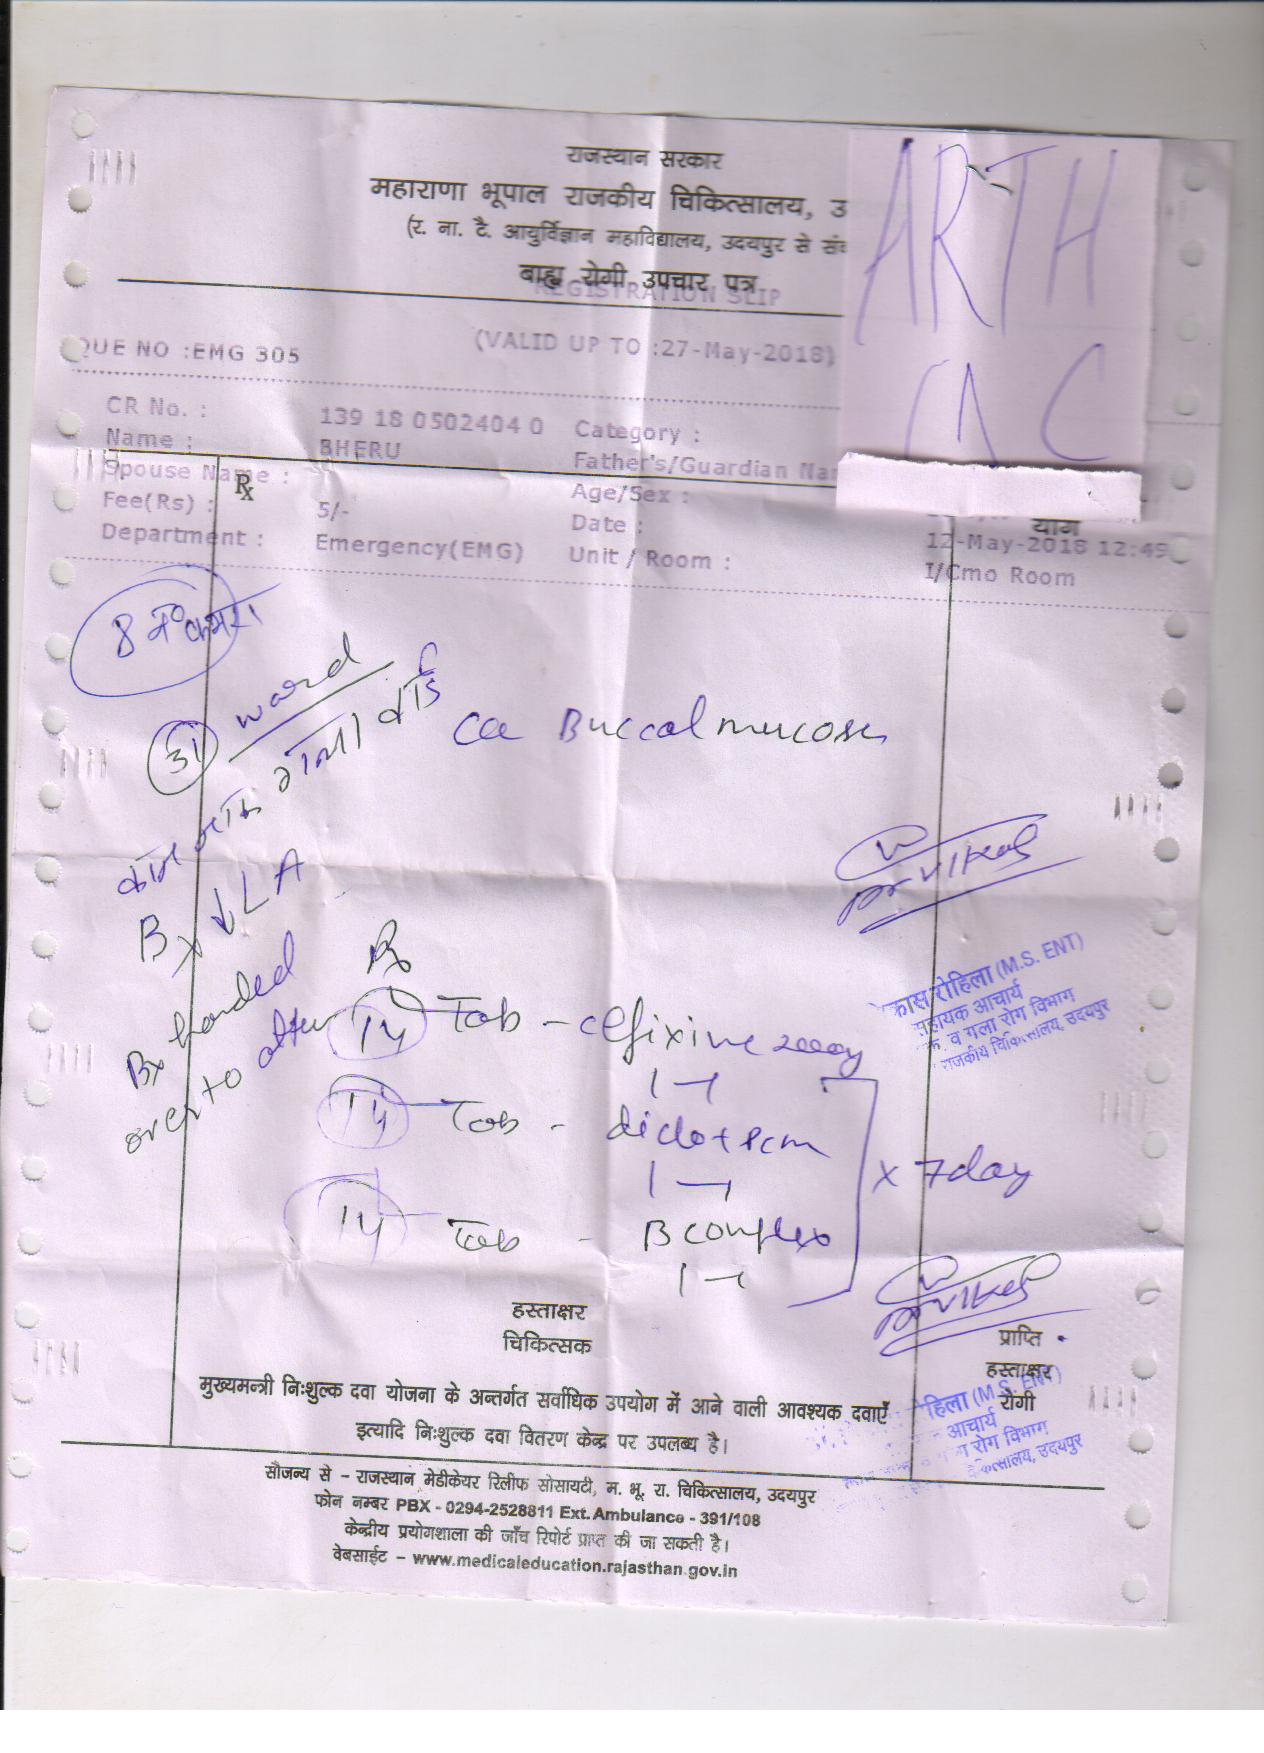 राजस्थान सरकार
महाराणा भूपाल राजकीय चिकित्सालय, उ
(र. ना. टै. आयुर्विज्ञान महाविद्यालय, उदयपुर से सं
बाह्य रोगी उपचार पत्र
REGISTRATION SLIP
ARTH
C
QUE NO :EMG 305
(VALID UP TO :27-May-2018)
CR No. : 139 18 0502404 0 Category :
Name : BHERU Father's/Guardian Nar
Spouse Name :
Rx
Fee(Rs) : 5/- Age/Sex :
योग
Department : Emergency(EMG) Date : 12-May-2018 12:49
Unit / Room : I/Cmo Room
8 नं० कमरा
31 ward
कान नाक गला वार्ड
Ca Buccal mucosa
Bx ↓ LA
Dr Vikas
Bx handed
over to after
Rx
14 Tab - cefixime 200mg
1 —1
14 Tab - diclo + pcm
1 —1
x 7 day
14 Tab - B complex
1 —1
कास रोहिला (M.S. ENT)
सहायक आचार्य
क व गला रोग विभाग
राजकीय चिकित्सालय, उदयपुर
Dr Vikas
हस्ताक्षर
चिकित्सक
प्राप्ति
हस्ताक्षर
रोगी
हिला (M.S. ENT)
आचार्य
रोग विभाग
कित्सालय, उदयपुर
मुख्यमन्त्री निःशुल्क दवा योजना के अन्तर्गत सर्वाधिक उपयोग में आने वाली आवश्यक दवाएँ
इत्यादि निःशुल्क दवा वितरण केन्द्र पर उपलब्ध है।
सौजन्य से – राजस्थान मेडीकेयर रिलीफ सोसायटी, म. भू. रा. चिकित्सालय, उदयपुर
फोन नम्बर PBX - 0294-2528811 Ext. Ambulance - 391/108
केन्द्रीय प्रयोगशाला की जाँच रिपोर्ट प्राप्त की जा सकती है।
वेबसाईट – www.medicaleducation.rajasthan.gov.in